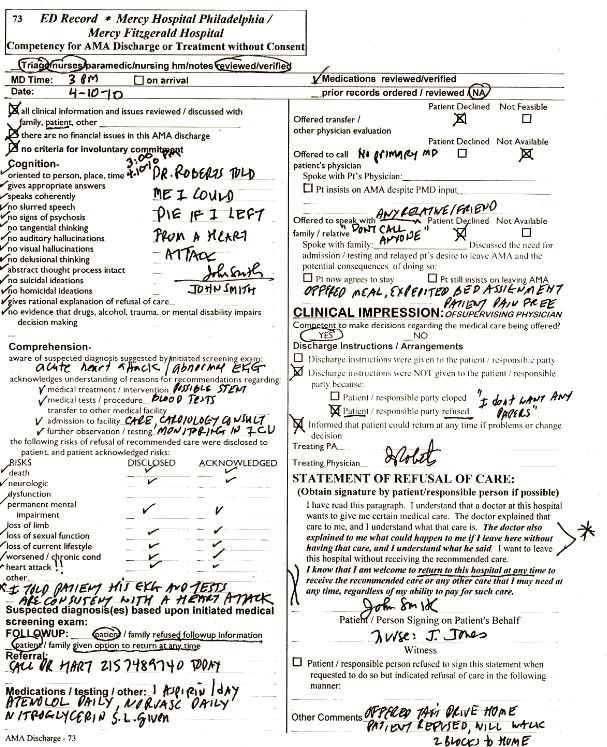 73 ED Record * Mercy Hospital Philadelphia /
Mercy Fitzgerald Hospital
Competency for AMA Discharge or Treatment without Consent
Triage/nurses/paramedic/nursing hm/notes reviewed/verified
MD Time: 3 PM on arrival
Date: 4-10-10
all clinical information and issues reviewed / discussed with
family, patient, other
there are no financial issues in this AMA discharge
no criteria for involuntary commitment
Cognition- 3:00 PM
oriented to person, place, time 4-10-10 DR. ROBERTS TOLD
gives appropriate answers
speaks coherently ME I COULD
no slurred speech
no signs of psychosis DIE IF I LEFT
no tangential thinking
no auditory hallucinations FROM A HEART
no visual hallucinations
no delusional thinking ATTACK
abstract thought process intact John Smith
no suicidal ideations
no homicidal ideations JOHN SMITH
gives rational explanation of refusal of care
no evidence that drugs, alcohol, trauma, or mental disability impairs
decision making
Comprehension-
aware of suspected diagnosis suggested by initiated screening exam:
acute heart attack / abnormal EKG
acknowledges understanding of reasons for recommendations regarding:
medical treatment / intervention POSSIBLE STENT
medical tests / procedure BLOOD TESTS
transfer to other medical facility
admission to facility CARE, CARDIOLOGY CONSULT
further observation / testing MONITORING IN ICU
the following risks of refusal of recommended care were disclosed to
patient, and patient acknowledged risks:
RISKS DISCLOSED ACKNOWLEDGED
death
neurologic
dysfunction
permanent mental
impairment
loss of limb
loss of sexual function
loss of current lifestyle
worsened / chronic cond
heart attack !!
other
* I TOLD PATIENT HIS EKG AND TESTS
ARE CONSISTENT WITH A HEART ATTACK
Suspected diagnosis(es) based upon initiated medical
screening exam:
FOLLOWUP: patient / family refused followup information
patient / family given option to return at any time
Referral:
CALL DR HART 2157489740 TODAY
Medications / testing / other: 1 ASPIRIN / DAY
ATENOLOL DAILY, NORVASC DAILY
NITROGLYCERIN S.L. given
AMA Discharge - 73
Medications reviewed/verified
prior records ordered / reviewed / NA
Patient Declined Not Feasible
Offered transfer /
other physician evaluation
Patient Declined Not Available
Offered to call NO PRIMARY MD
patient's physician
Spoke with Pt's Physician:
Pt insists on AMA despite PMD input
ANY RELATIVE/FRIEND
Offered to speak with Patient Declined Not Available
family / relative "DON'T CALL ANYONE"
Spoke with family: Discussed the need for
admission / testing and relayed pt's desire to leave AMA and the
potential consequences of doing so:
Pt now agrees to stay Pt still insists on leaving AMA
OFFERED MEAL, EXPEDITED BED ASSIGNMENT
PATIENT PAIN FREE
CLINICAL IMPRESSION: OF SUPERVISING PHYSICIAN
Competent to make decisions regarding the medical care being offered?
YES NO
Discharge Instructions / Arrangements
Discharge instructions were given to the patient / responsible party
Discharge instructions were NOT given to the patient / responsible
party because:
Patient / responsible party eloped "I DON'T WANT ANY
Patient / responsible party refused PAPERS"
Informed that patient could return at any time if problems or change
decision
Treating PA
Treating Physician
STATEMENT OF REFUSAL OF CARE:
(Obtain signature by patient/responsible person if possible)
I have read this paragraph. I understand that a doctor at this hospital
wants to give me certain medical care. The doctor explained that
care to me, and I understand what that care is. The doctor also
explained to me what could happen to me if I leave here without
having that care, and I understand what he said. I want to leave
this hospital without receiving the recommended care.
I know that I am welcome to return to this hospital at any time to
receive the recommended care or any other care that I may need at
any time, regardless of my ability to pay for such care.
John Smith
Patient / Person Signing on Patient's Behalf
Nurse: J. Jones
Witness
Patient / responsible person refused to sign this statement when
requested to do so but indicated refusal of care in the following
manner:
Other Comments OFFERED TAXI DRIVE HOME
PATIENT REFUSED, WILL WALK
2 BLOCKS to HOME